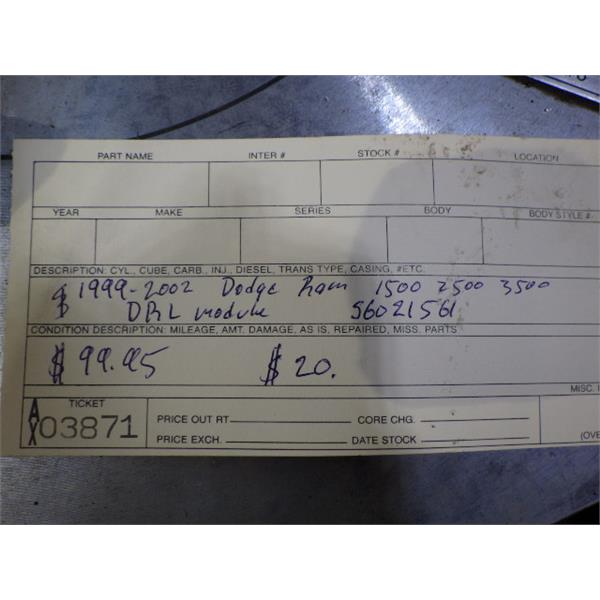 PART NAME INTER # STOCK # LOCATION
YEAR MAKE SERIES BODY BODY STYLE #
DESCRIPTION: CYL., CUBE, CARB., INJ., DIESEL, TRANS TYPE, CASING, #ETC.
$ 1999-2002 Dodge Ram 1500 2500 3500
DRL module 56021561
CONDITION DESCRIPTION: MILEAGE, AMT. DAMAGE, AS IS, REPAIRED, MISS. PARTS
$ 99.95 $ 20.
MISC. I
TICKET
AX 03871
PRICE OUT RT. CORE CHG.
PRICE EXCH. DATE STOCK (OVE